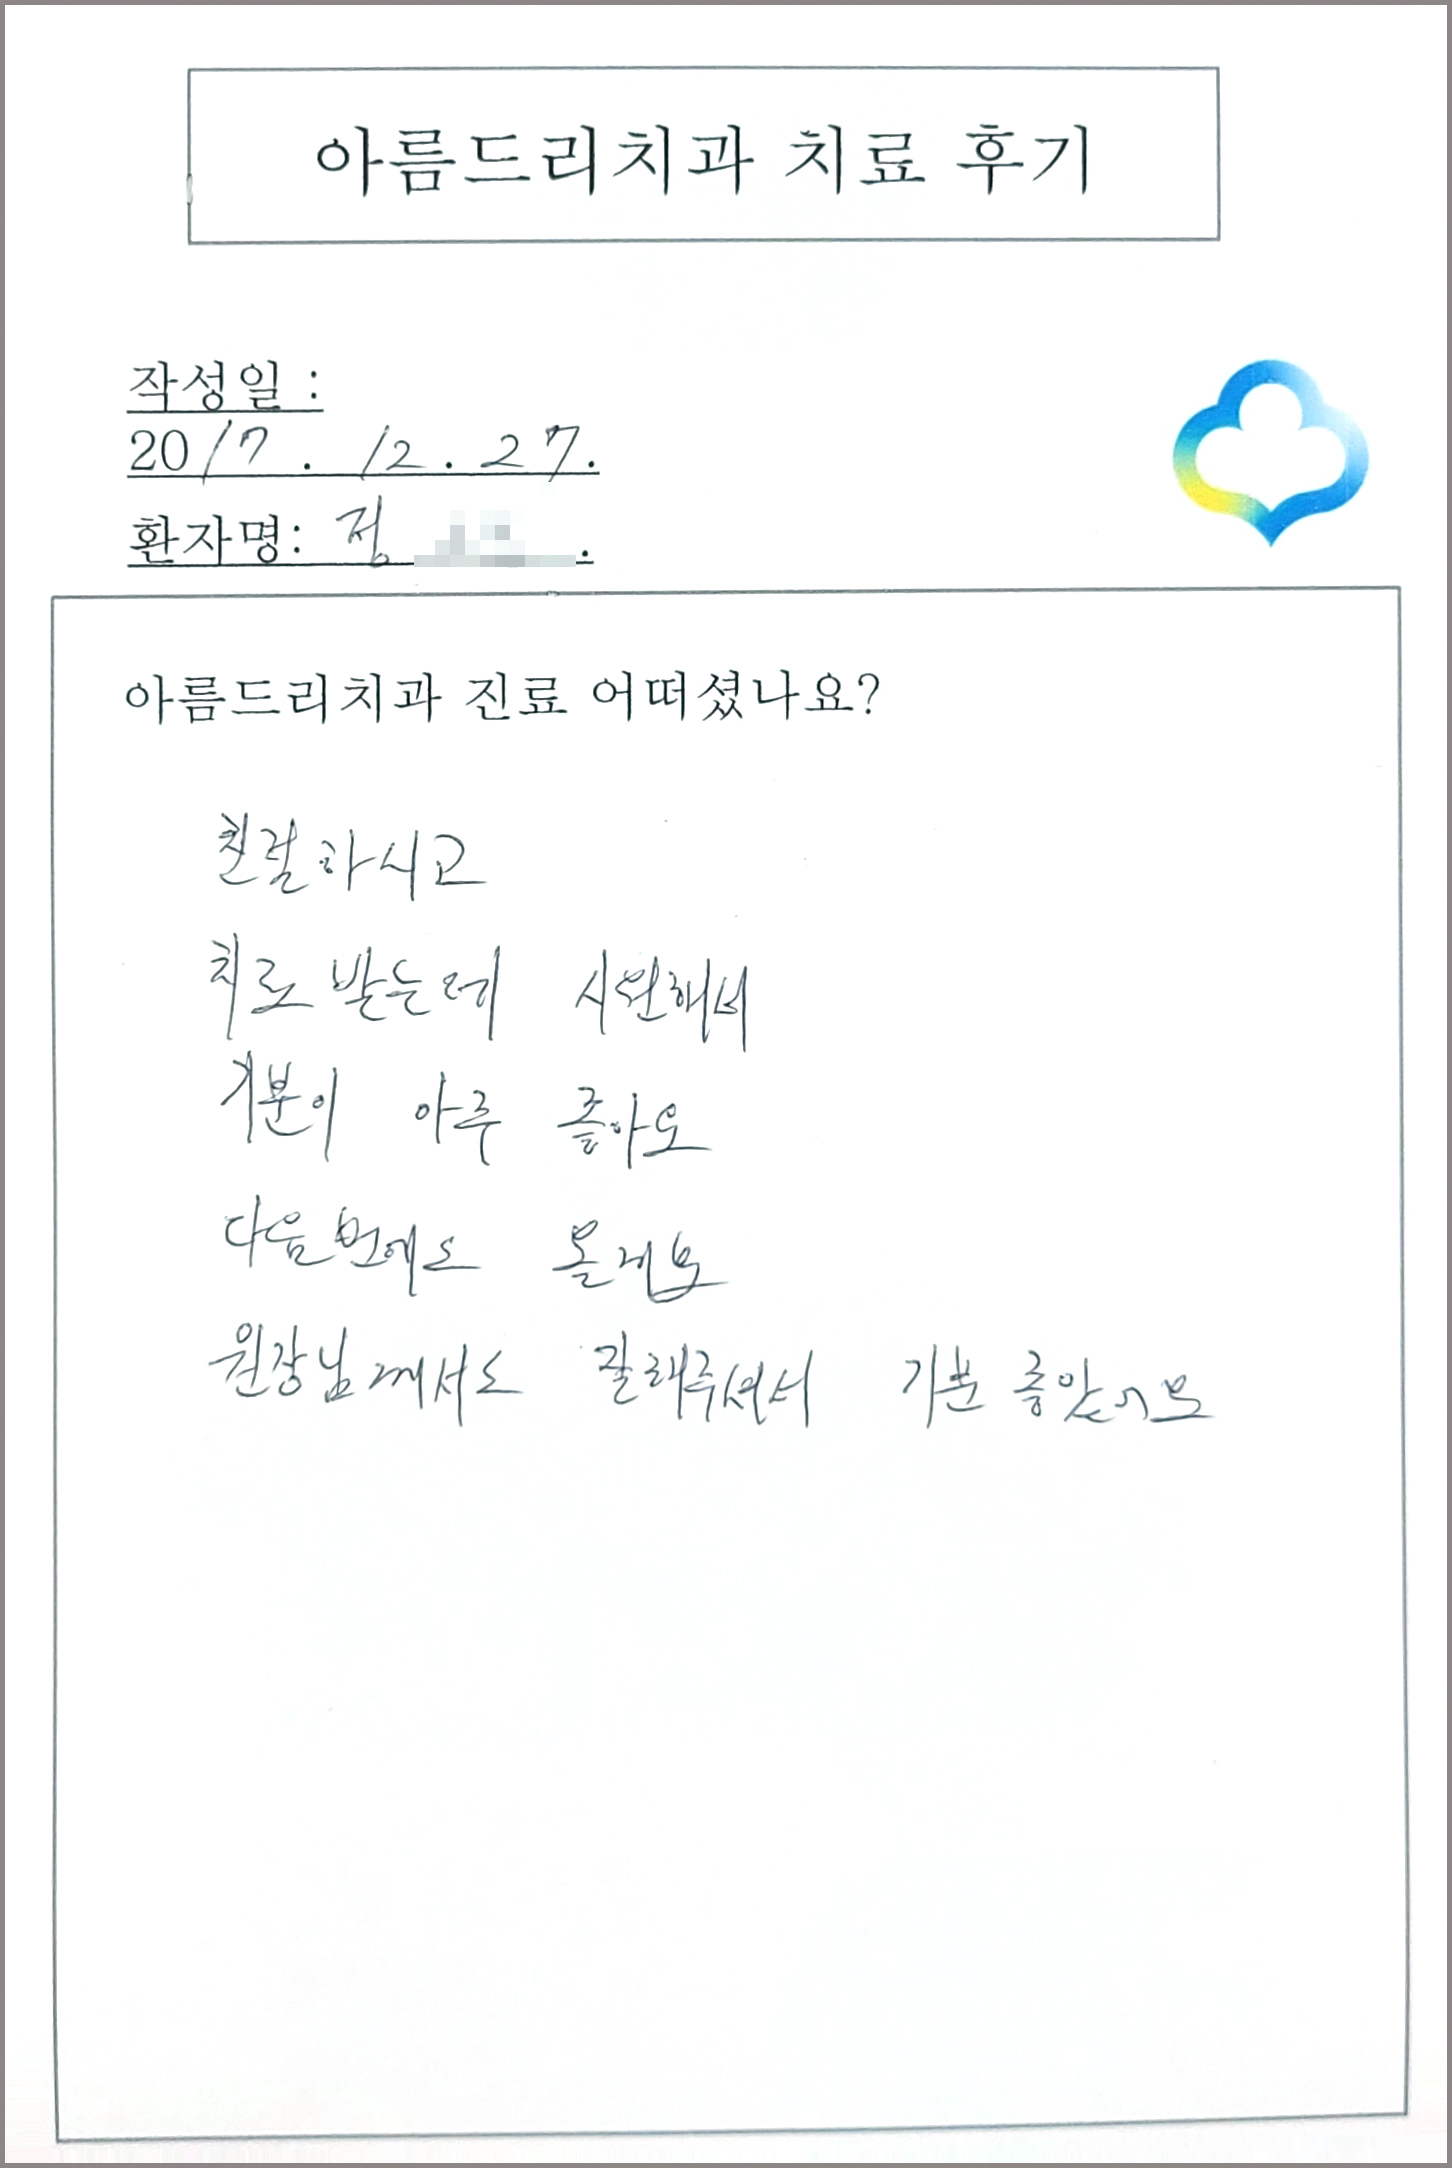 아름드리치과 치료 후기
작성일 :
2017. 12. 27.
환자명: 정 .
아름드리치과 진료 어떠셨나요?
친절하시고
치료받는데 시원해
기분이 아주 좋아요
다음번에도 올게요
원장님께서도 잘해주셔서 기분 좋았어요